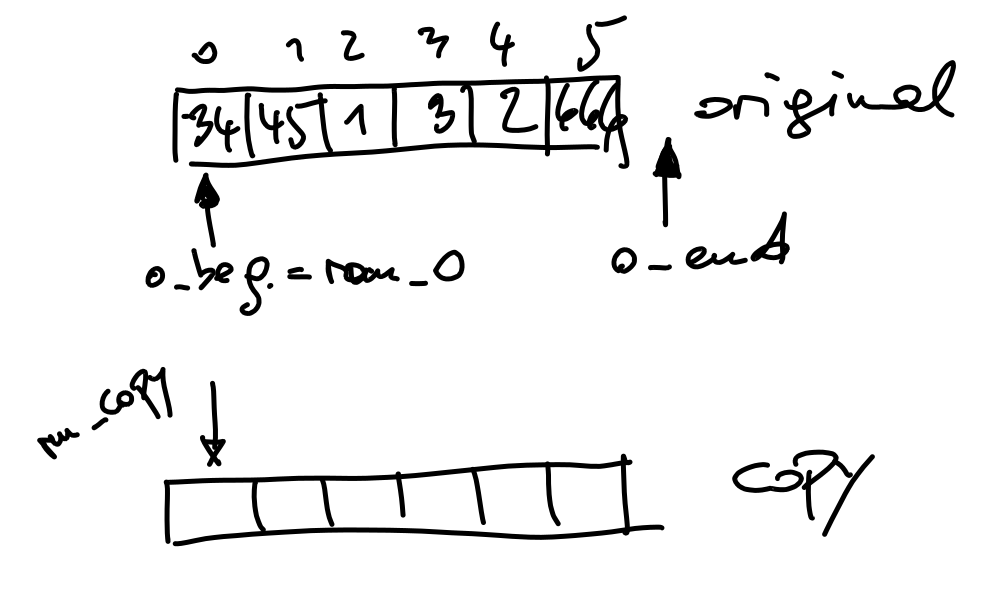 0 1 2 3 4 5
34 45 1 3 2 666
original
o_beg.=run_O
o_end
run_copy
copy